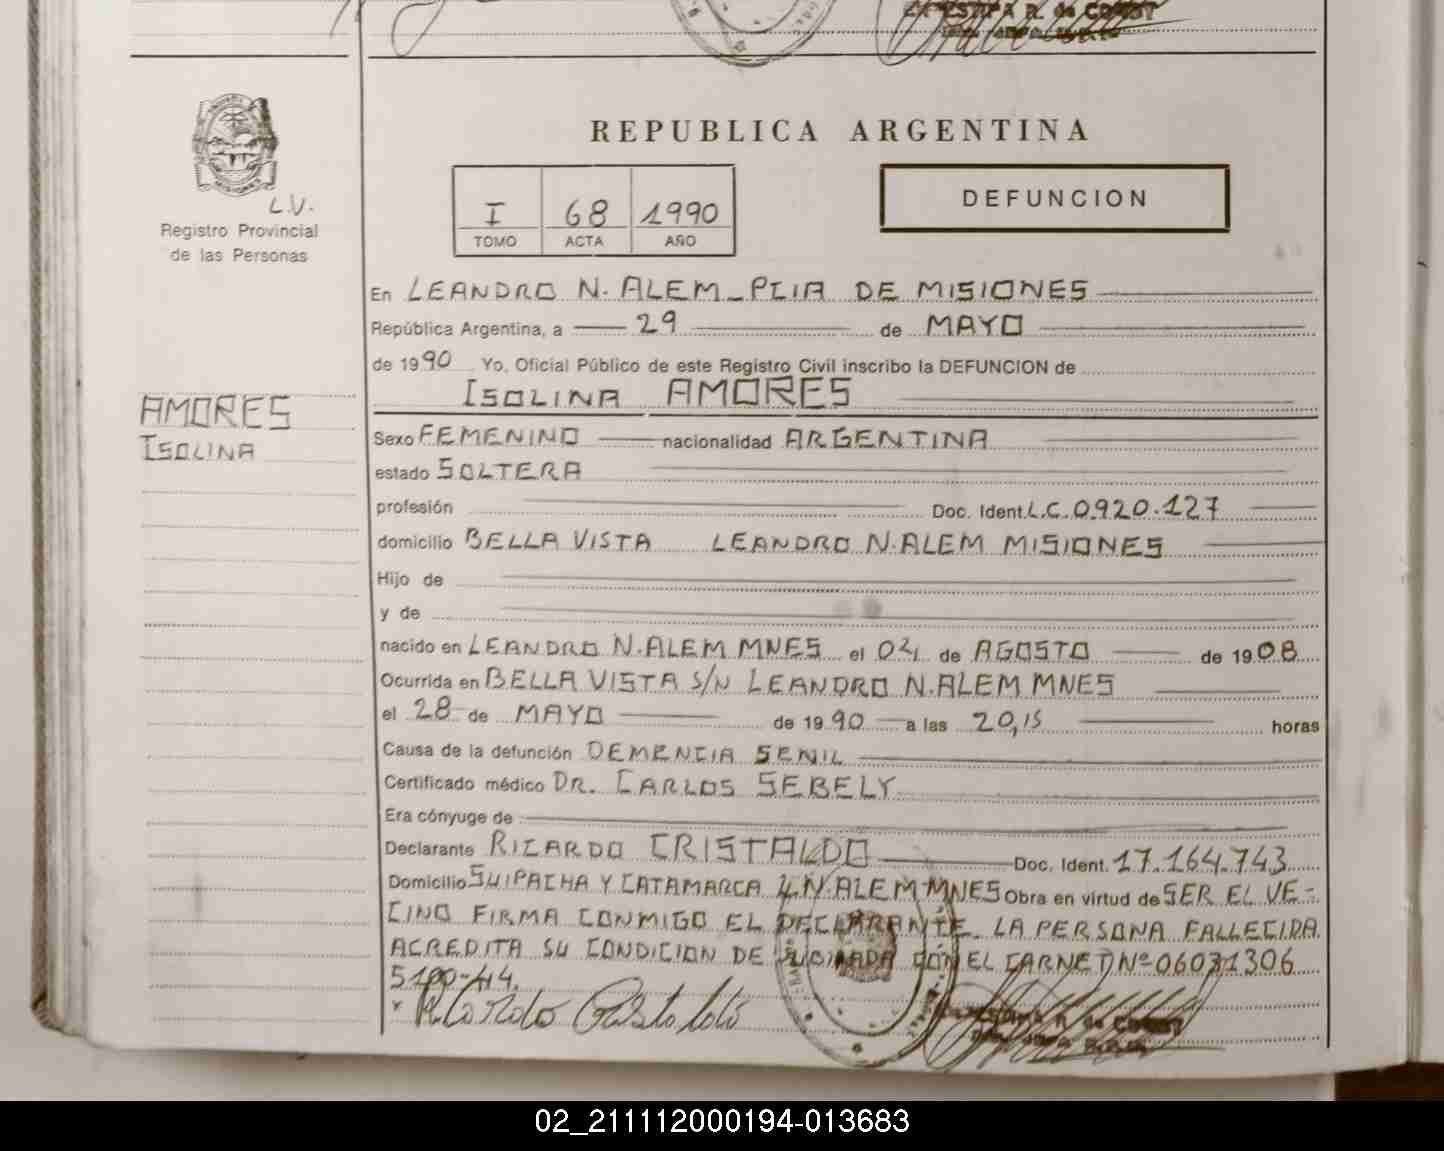 REPUBLICA ARGENTINA
DEFUNCION
I 68 1990
TOMO ACTA AÑO
MISIONES
L.V.
Registro Provincial
de las Personas
AMORES
ISOLINA
En LEANDRO N. ALEM_PCIA DE MISIONES
República Argentina, a 29 de MAYO
de 1990 Yo, Oficial Público de este Registro Civil inscribo la DEFUNCION de
ISOLINA AMORES
Sexo FEMENINO nacionalidad ARGENTINA
estado SOLTERA
profesión Doc. Ident. L.C. 0.920.127
domicilio BELLA VISTA LEANDRO N. ALEM MISIONES
Hijo de
y de
nacido en LEANDRO N. ALEM MNES el de AGOSTO de 1908
Ocurrida en BELLA VISTA S/N LEANDRO N. ALEM MNES
el 28 de MAYO de 1990 a las 20,15 horas
Causa de la defunción DEMENCIA SENIL
Certificado médico DR. CARLOS SEBELY
Era cónyuge de
Declarante RICARDO CRISTALDO Doc. Ident. 17.164.743
Domicilio SUIPACHA Y CATAMARCA L.N. ALEM MNES Obra en virtud de SER EL VE-
CINO FIRMA CONMIGO EL DECLARANTE. LA PERSONA FALLECIDA
ACREDITA SU CONDICION DE JUBILADA CON EL CARNET Nº 06031306
02_211112000194-013683